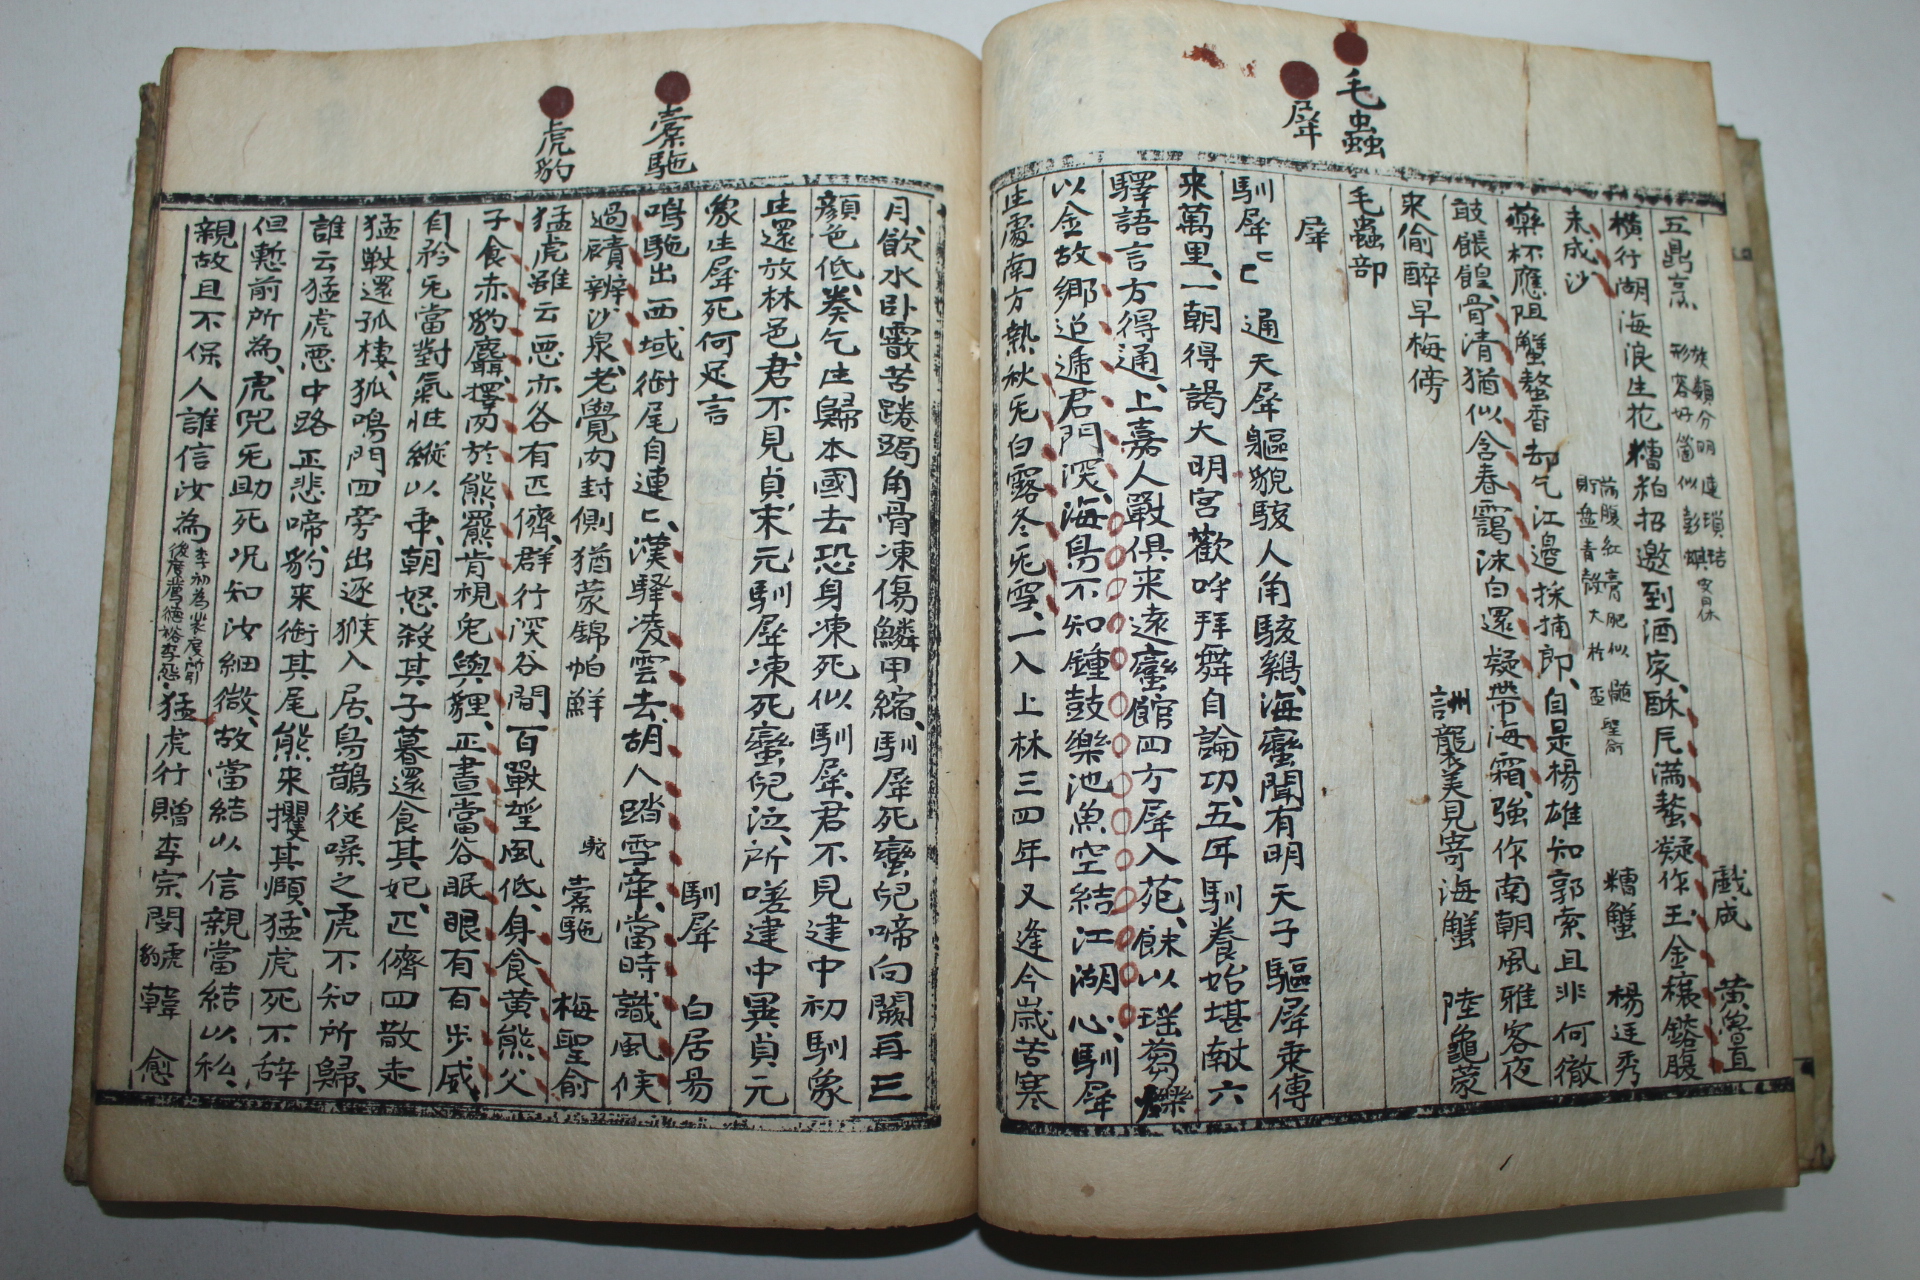 毛蟲
犀
橐駞
虎豹
戯成 黄魯直
五鼎烹 族類分明連瑣琂 形容好箇似彭蜞
横行湖海浪生花糟粕招邀到酒家酥片滿螯凝作玉金穰鎔腹
未成沙 糟蟹 楊廷秀
藥杯應阻蟹螯香却乞江邉採捕郎自是楊雄知郭索且非何徹
敢餦餭骨清猶似含春靄沫白還疑帶海霜強作南朝風雅客夜
來偷醉早梅傍 訓襲美見寄海蟹 陸龜蒙
毛蟲部
犀
馴犀〻〻通天犀軀貌駭人角駭鷄海蠻聞有明天子驅犀乗傳
来萬里一朝得謁大明宮歡呼拜舞自論功五年馴養始堪献六
驛語言方得通上嘉人獸俱来逺蠻館四方犀入苑餗以瑶蒭鏁
以金故郷迢遞君門深海鳥不知鍾鼓樂池魚空結江湖心馴犀
生處南方熱秋无白露冬无雪一入上林三四年又逢今歳苦寒
月飲水卧霰苦踡跼角骨凍傷鱗甲縮馴犀死蠻兒啼向闕再三
顔色低奏乞生歸本國去恐身凍死似馴犀君不見建中初馴象
生還放林邑君不見貞末元馴犀凍死蠻兒泣所嗟建中異貞元
象生犀死何足言 馴犀 白居昜
鳴駞出西域銜尾自連〻漢驛凌雲去胡人踏雪牽當時識風候
過磧辨沙泉老覺肉封側猶蒙錦帕鮮 橐駞 梅聖俞
猛虎雖云悪亦各有匹儕群行深谷間百獸望風低身食黄熊父
子食赤豹麛擇肉於熊羆肯視兔與貍正晝當谷眠眼有百步威
自矜无當對氣性縱以乖朝怒殺其子暮還食其妃匹儕四散走
猛獣還孤棲狐鳴門四旁出逐猴入居烏鵲從噪之虎不知所歸
誰云猛虎悪中路正悲啼豹来銜其尾熊来攫其頤猛虎死不辞
但慙前所為虎兕无助死况知汝細微故當結以信親當結以私
親故且不保人誰信汝為 猛虎行贈李宗閔 虎豹 韓愈